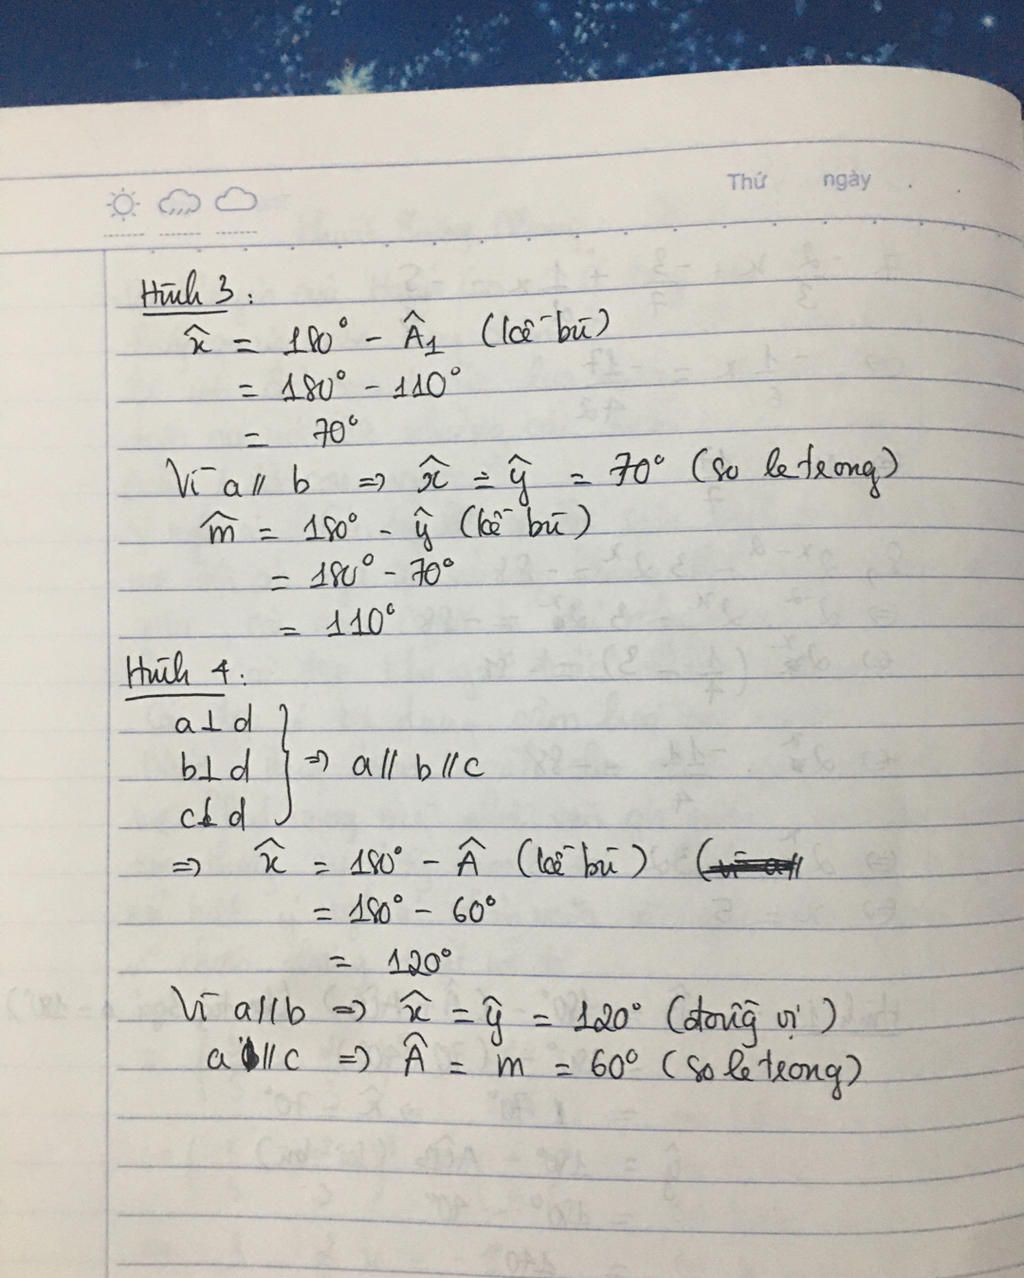 Thứ ngày
Hình 3:
x̂ = 180° - Â₁ (kề bù)
= 180° - 110°
= 70°
Vì a // b => x̂ = ŷ = 70° (so le trong)
m̂ = 180° - ŷ (kề bù)
= 180° - 70°
= 110°
Hình 4:
a⊥d
b⊥d
c⊥d
} => a // b // c
=> x̂ = 180° - Â (kề bù)
= 180° - 60°
= 120°
Vì a//b => x̂ = ŷ = 120° (đồng vị)
a // c => Â = m = 60° (so le trong)